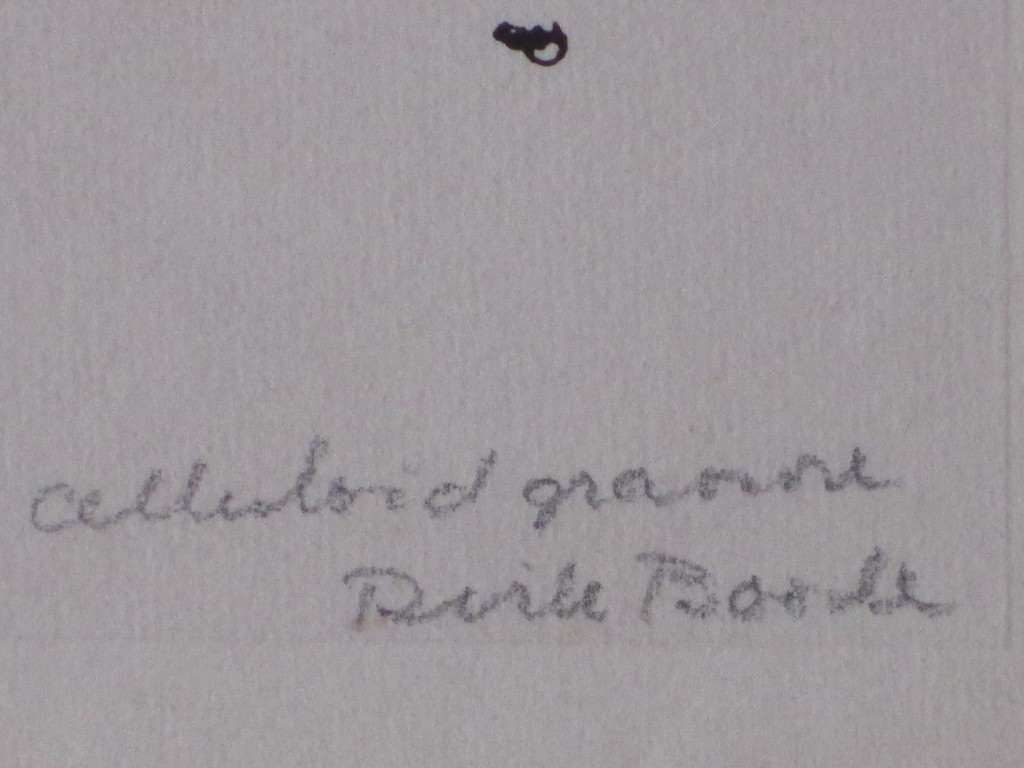 celluloid gravure
Dirk Boode